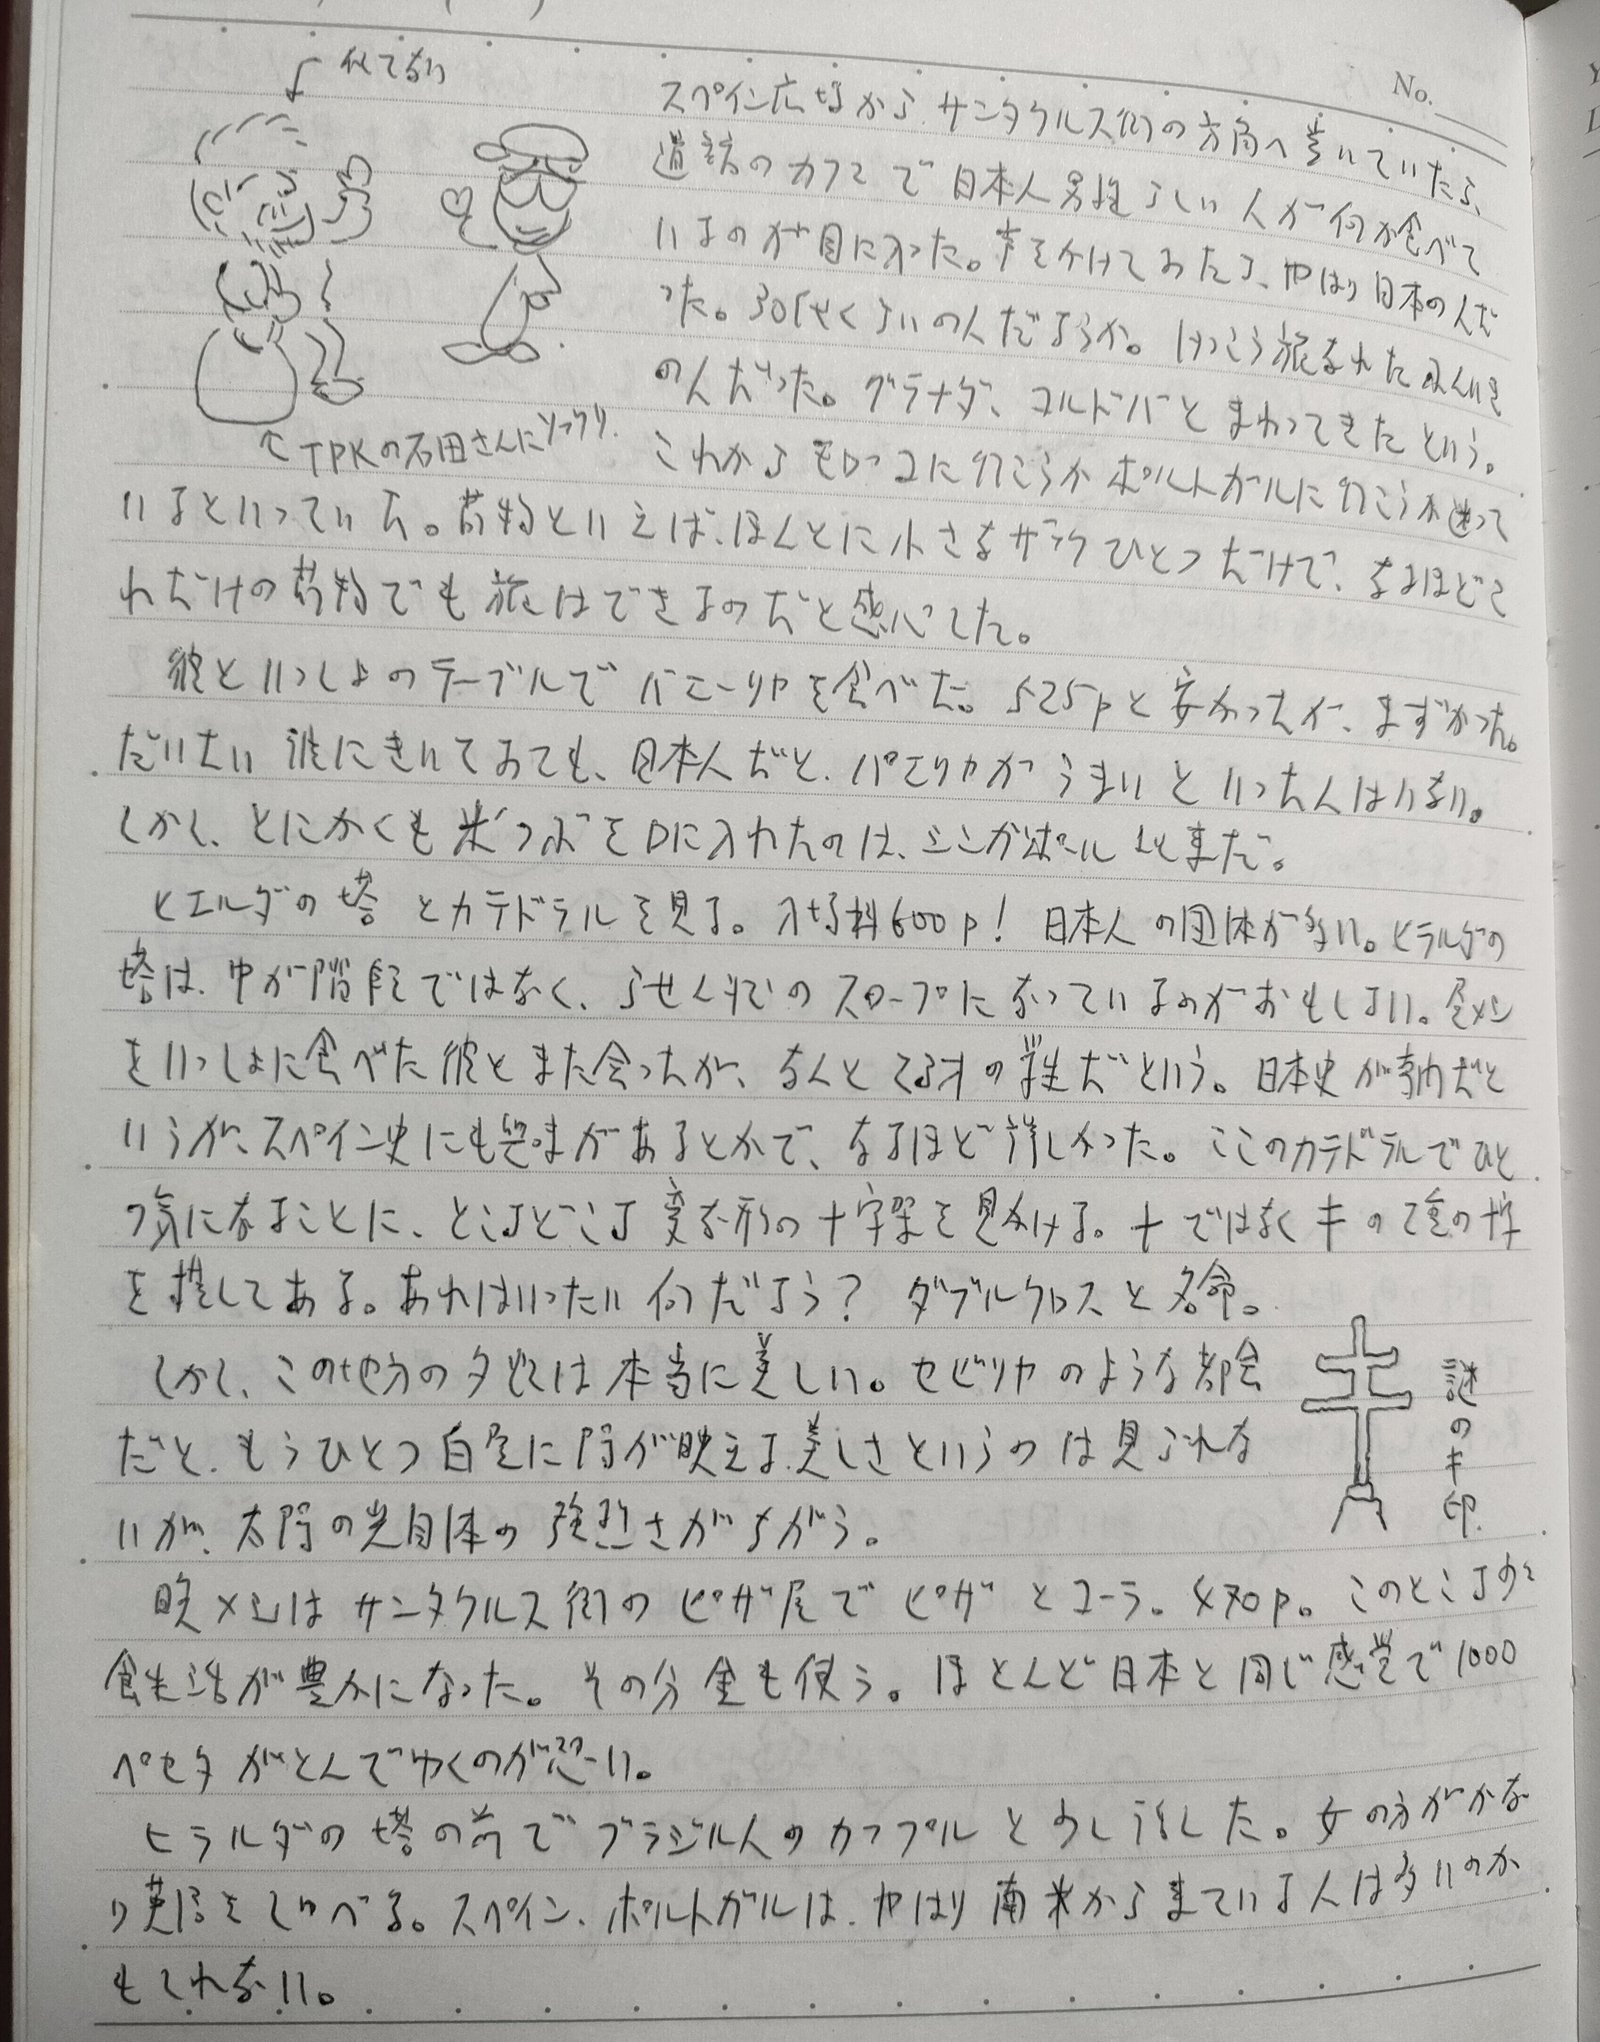 No.
似てない
スペイン広場からサンタクルス街の方向へ歩いていたら、
道端のカフェで日本人男性らしい人が何か食べて
いるのが目に入った。声をかけてみたら、やはり日本の人だ
った。30代くらいの人だろうか。けっこう旅なれた
の人だった。グラナダ、コルドバとまわってきたという。
これからモロッコに行こうかポルトガルに行こうか迷って
↑TPKの石田さんにソックリ.
いるといっていた。荷物といえば、ほんとに小さなザックひとつだけで、なるほどこ
れだけの荷物でも旅はできるのだと感心した。
彼といっしょのテーブルでパエーリャを食べた。525pと安かったが、まずかった。
だいたい誰にきいてみても、日本人だと、パエリヤがうまいといった人はいない。
しかし、とにかくも米つぶを口に入れたのは、シンガポール以来だ。
ヒエルダの塔とカテドラルを見る。入場料600p! 日本人の団体が多い。ヒラルダの
塔は、中が階段ではなく、らせん状のスロープになっているのがおもしろい。昼メシ
をいっしょに食べた彼とまた会ったが、なんと23才の学生だという。日本史が専門だと
いうが、スペイン史にも興味があるとかで、なるほど詳しかった。ここのカテドラルでひと
つ気になることに、ところどころ変な形の十字架を見かける。十ではなくキの字の十字
を模してある。あれはいったい何だろう? ダブルクロスと名命。
しかし、この地方の夕暮は本当に美しい。セビリヤのような都会
だと、もうひとつ白壁に陽が映える美しさというのは見られな
いが、太陽の光自体の強烈さがちがう。
謎のキ印.
晩メシはサンタクルス街のピザ屋でピザとコーラ。470p。このところ
食生活が豊かになった。その分金も使う。ほとんど日本と同じ感覚で1000
ペセタがとんでゆくのが恐い。
ヒラルダの塔の前でブラジル人のカップルと少し話した。女の方がかな
り英語をしゃべる。スペイン、ポルトガルは、やはり南米から来ている人は多いのか
もしれない。